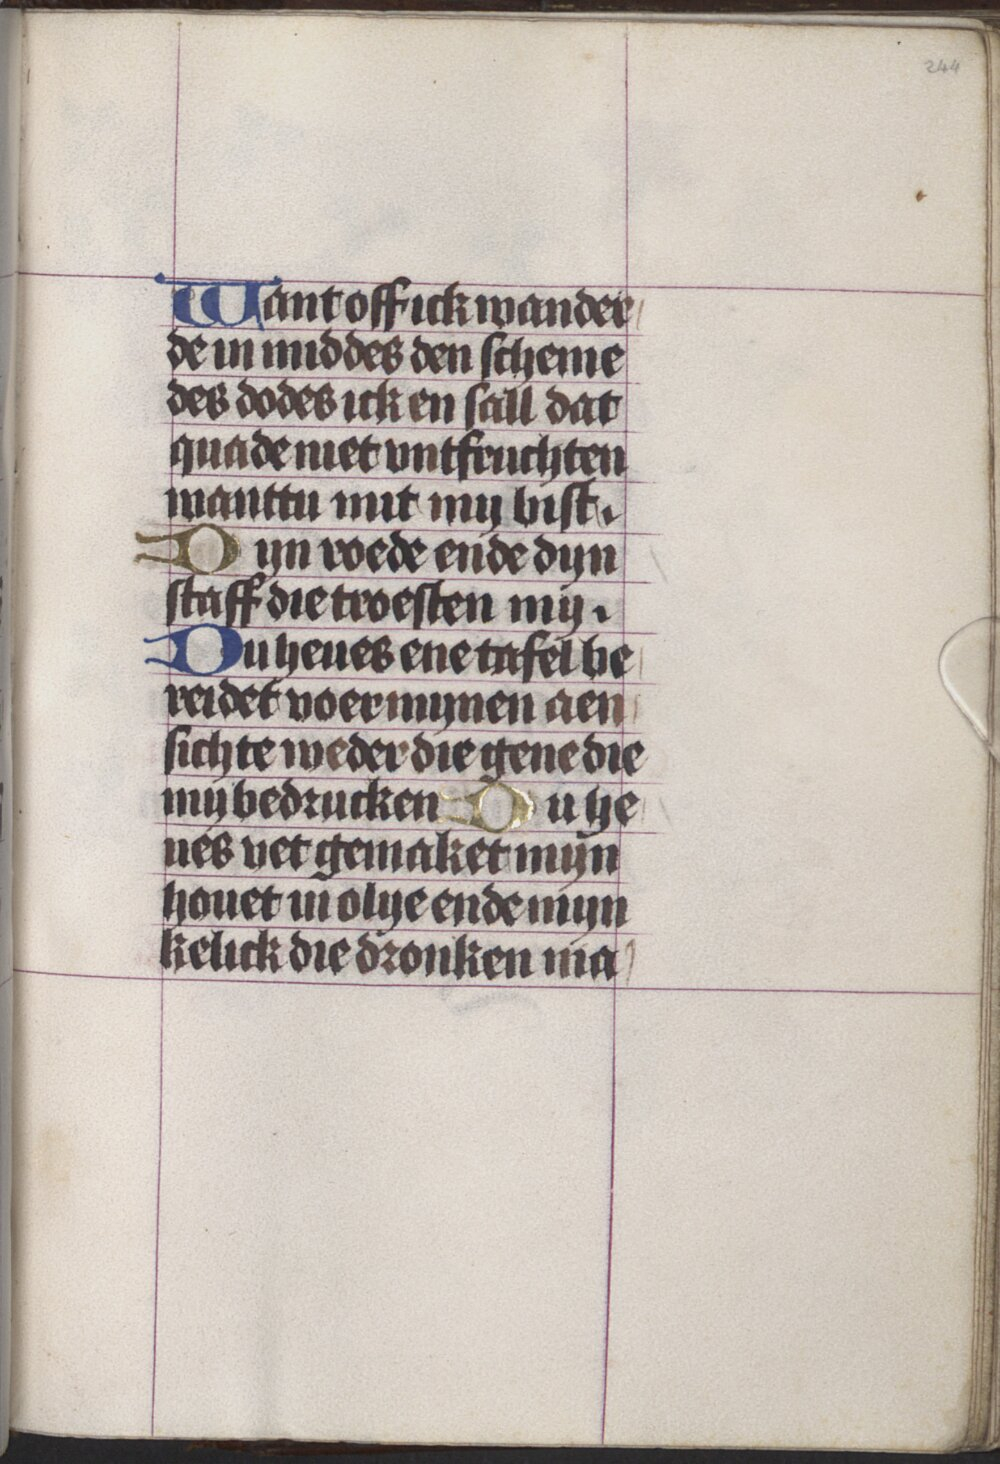 244
Want off ick wander
de in middes den scheme
des dodes ick en sall dat
quade niet vntfruchten
wanttu mit my bist.
Dyn roede ende dyn
staff die troesten my.
Du heues ene tafel be
reidet voer mynen aen
sichte weder die gene die
my bedrucken Du he
ues vet gemaket myn
houet in olye ende myn
kelick die dronken ma